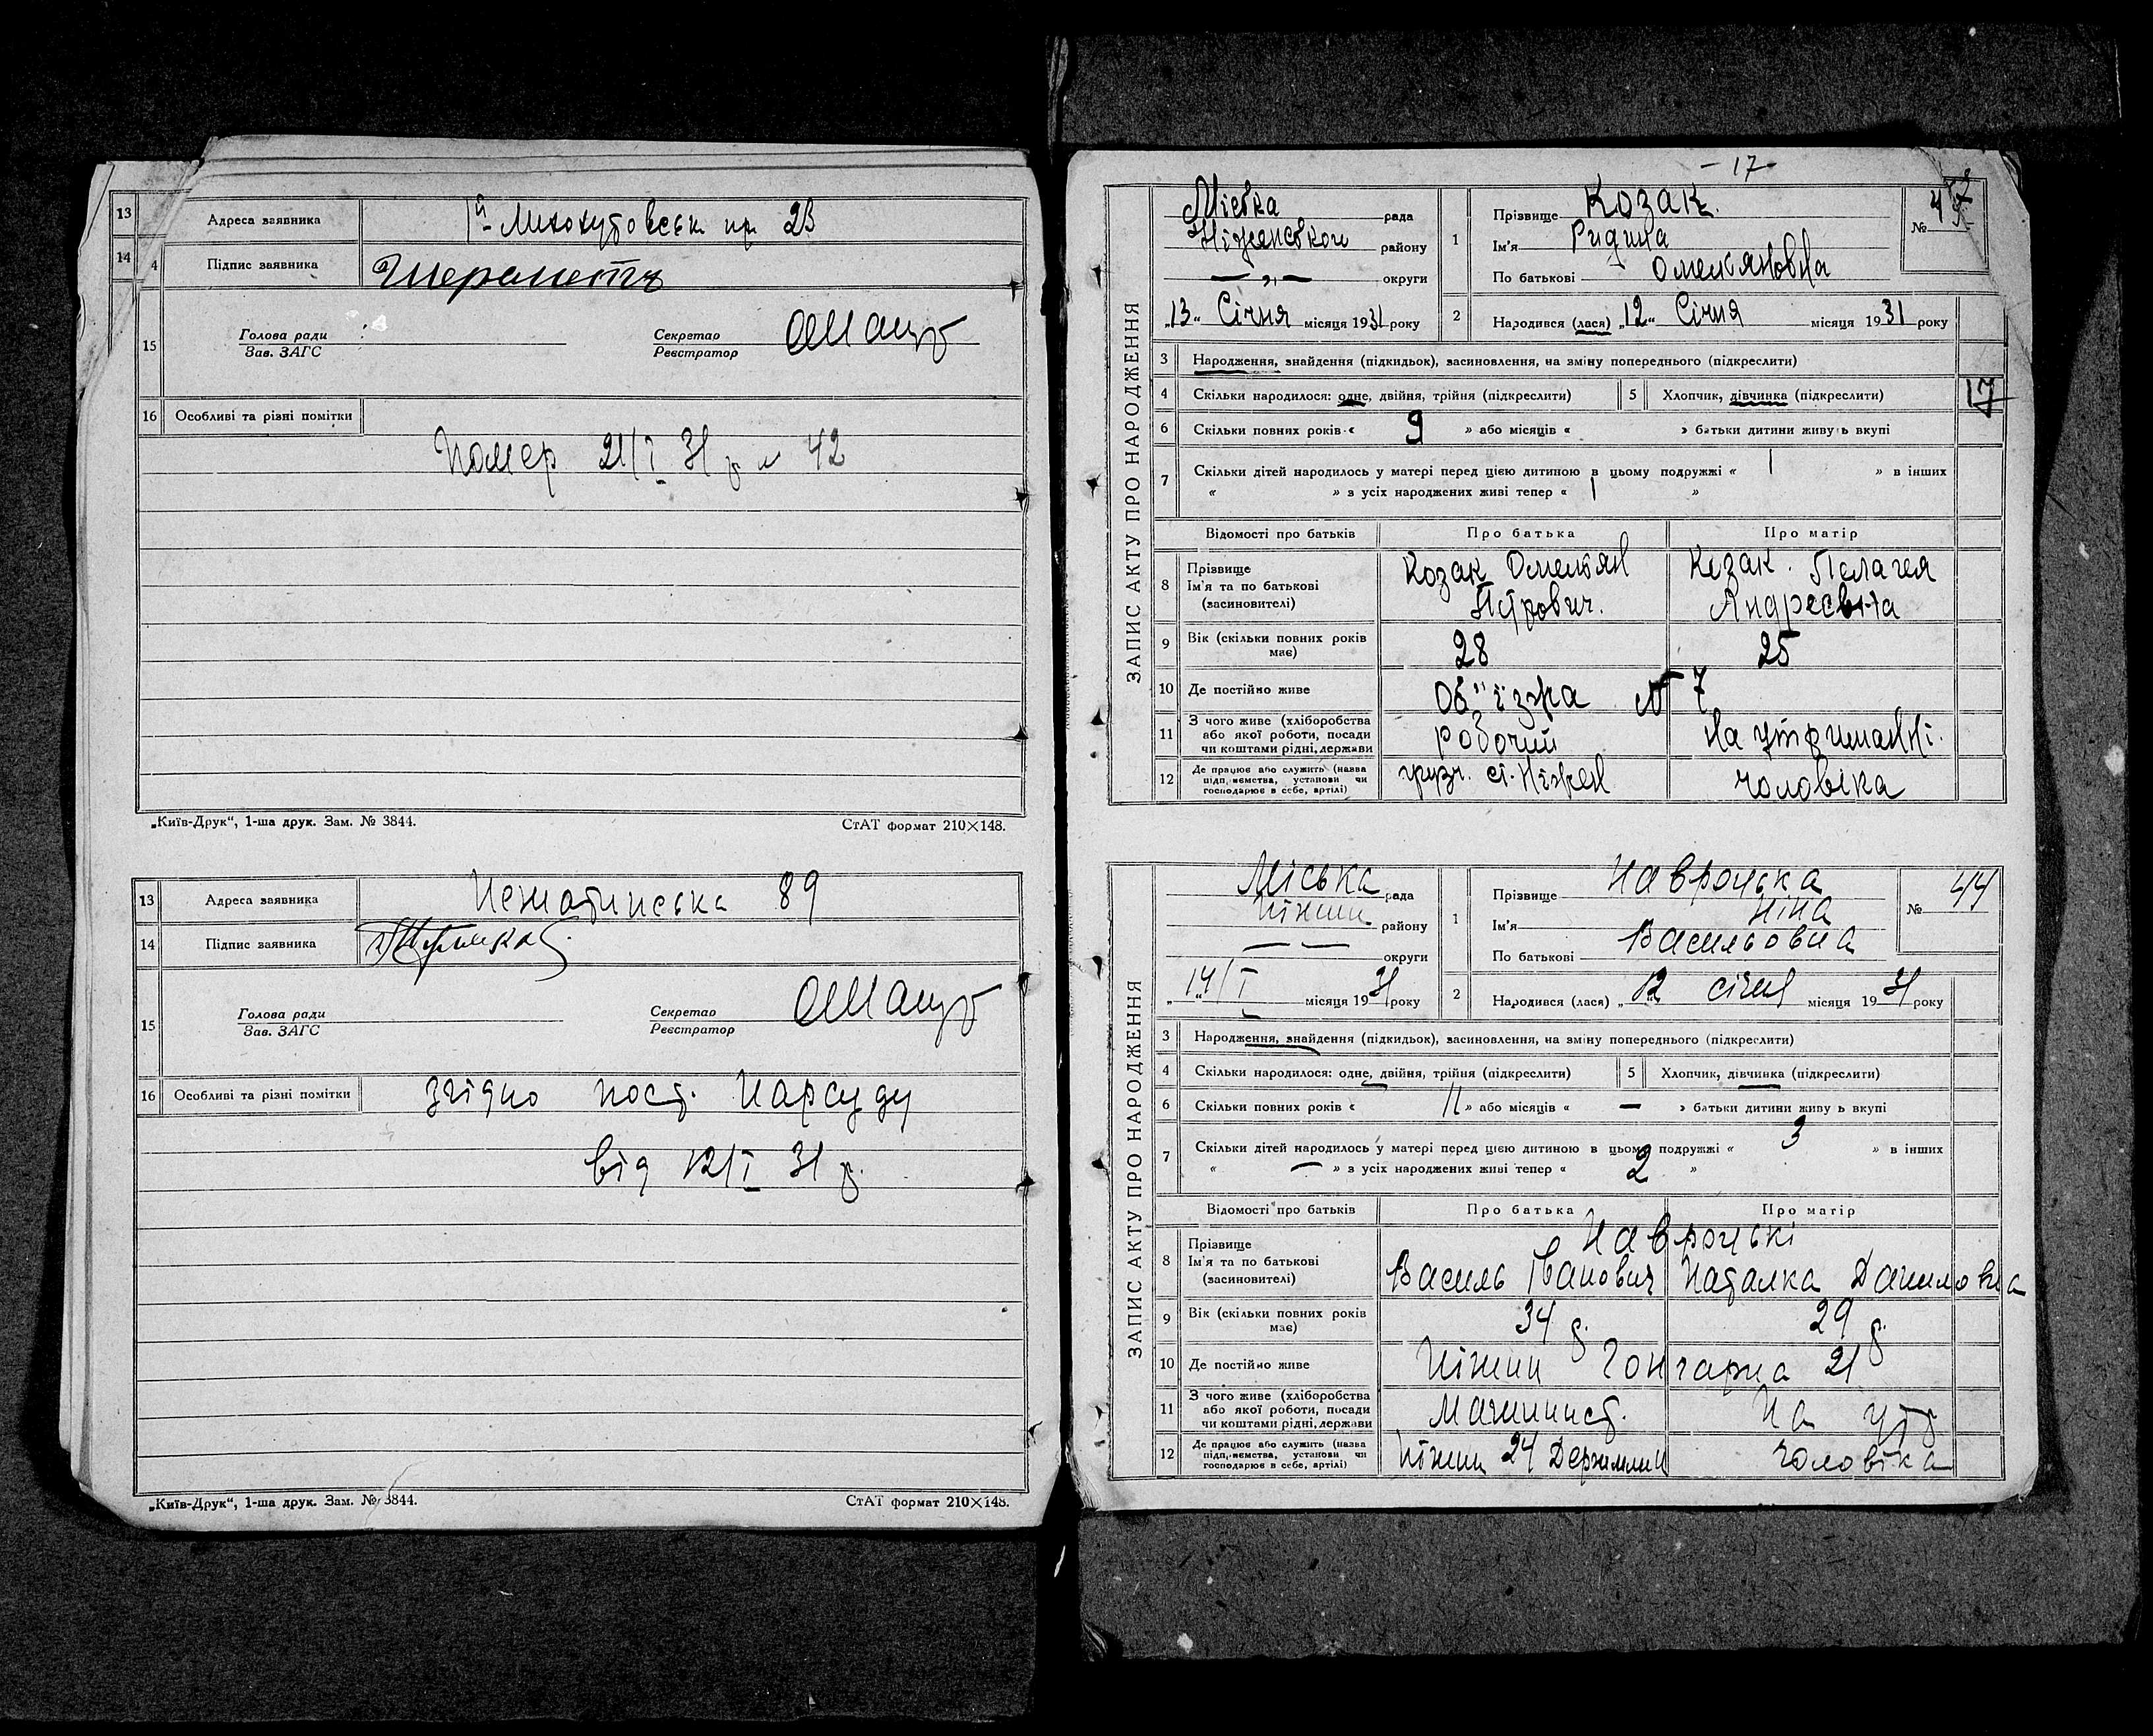 13 Адреса заявника пр 23
14 4 Підпис заявника
15 Голова ради Зав. ЗАГС Секретар Реєстратор
16 Особливі та різні помітки
Помер 21/I 31 р № 42
„Київ-Друк“, 1-ша друк. Зам. № 3844. СтАТ формат 210×148.
13 Адреса заявника 89
14 Підпис заявника
15 Голова ради Зав. ЗАГС Секретар Реєстратор
16 Особливі та різні помітки згідно пост. Нарсуду
від 12/I 31 р.
„Київ-Друк“, 1-ша друк. Зам. № 3844. СтАТ формат 210×148.
- 17 -
ЗАПИС АКТУ ПРО НАРОДЖЕННЯ
Міська рада
району
— „ — округи
„13“ Січня місяця 1931 року
1 Прізвище Козак.
Ім'я
По батькові Омеляновна
№
2 Народився (лася) „12“ Січня місяця 1931 року
3 Народження, знайдення (підкидьок), засиновлення, на зміну попереднього (підкреслити)
4 Скільки народилося: одне, двійня, трійня (підкреслити) 5 Хлопчик, дівчинка (підкреслити) 17
6 Скільки повних років « 9 » або місяців « » батьки дитини живуть вкупі
7 Скільки дітей народилось у матері перед цією дитиною в цьому подружжі « 1 » в інших
« » з усіх народжених живі тепер « 1 »
Відомості про батьків Про батька Про матір
8 Прізвище Ім'я та по батькові (засиновителі) Козак Омелян Петрович. Козак. Пелагея Андреевна
9 Вік (скільки повних років має) 28 25
10 Де постійно живе Об"їзжа № 7
11 З чого живе (хліборобства або якої роботи, посади чи коштами рідні, держави робочий На утриманні.
12 Де працює або служить (назва підприємства, установи чи господарює в себе, артілі) ст. Ніжен чоловіка
ЗАПИС АКТУ ПРО НАРОДЖЕННЯ
Міська рада
Ніжин району
— — округи
„14/I місяця 1931 року
1 Прізвище Навроцька
Ім'я Ніна
По батькові Васильовна
№ 44
2 Народився (лася) „12 січня місяця 1931 року
3 Народження, знайдення (підкидьок), засиновлення, на зміну попереднього (підкреслити)
4 Скільки народилося: одне, двійня, трійня (підкреслити) 5 Хлопчик, дівчинка (підкреслити)
6 Скільки повних років « 11 » або місяців « — » батьки дитини живуть вкупі
7 Скільки дітей народилось у матері перед цією дитиною в цьому подружжі « 3 » в інших
« — » з усіх народжених живі тепер « 2 »
Відомості про батьків Про батька Про матір
Навроцькі
8 Прізвище Ім'я та по батькові (засиновителі) Василь Іванович Наталка Даниловна
9 Вік (скільки повних років має) 34 р. 29 р.
10 Де постійно живе Ніжин Гончарна 21
11 З чого живе (хліборобства або якої роботи, посади чи коштами рідні, держави Машинист. На утр
12 Де працює або служить (назва підприємства, установи чи господарює в себе, артілі) Ніжин 24 Держмлин чоловіка